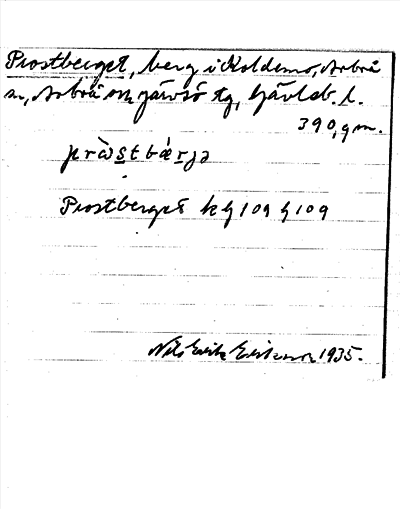 Prostberget, berg i Koldemo, Arbrå
sn, Arbrå och Järvsö tg, Gävleb. l.
390,9 m.
pròstbærjə
Prostberget k bl 109 h 109
Nils Erik Eriksson 1935.